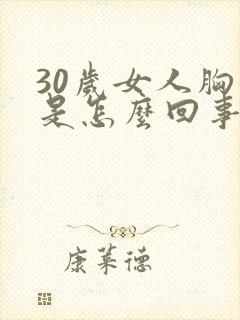 30歲女人胸
是怎麼回事
康萊德